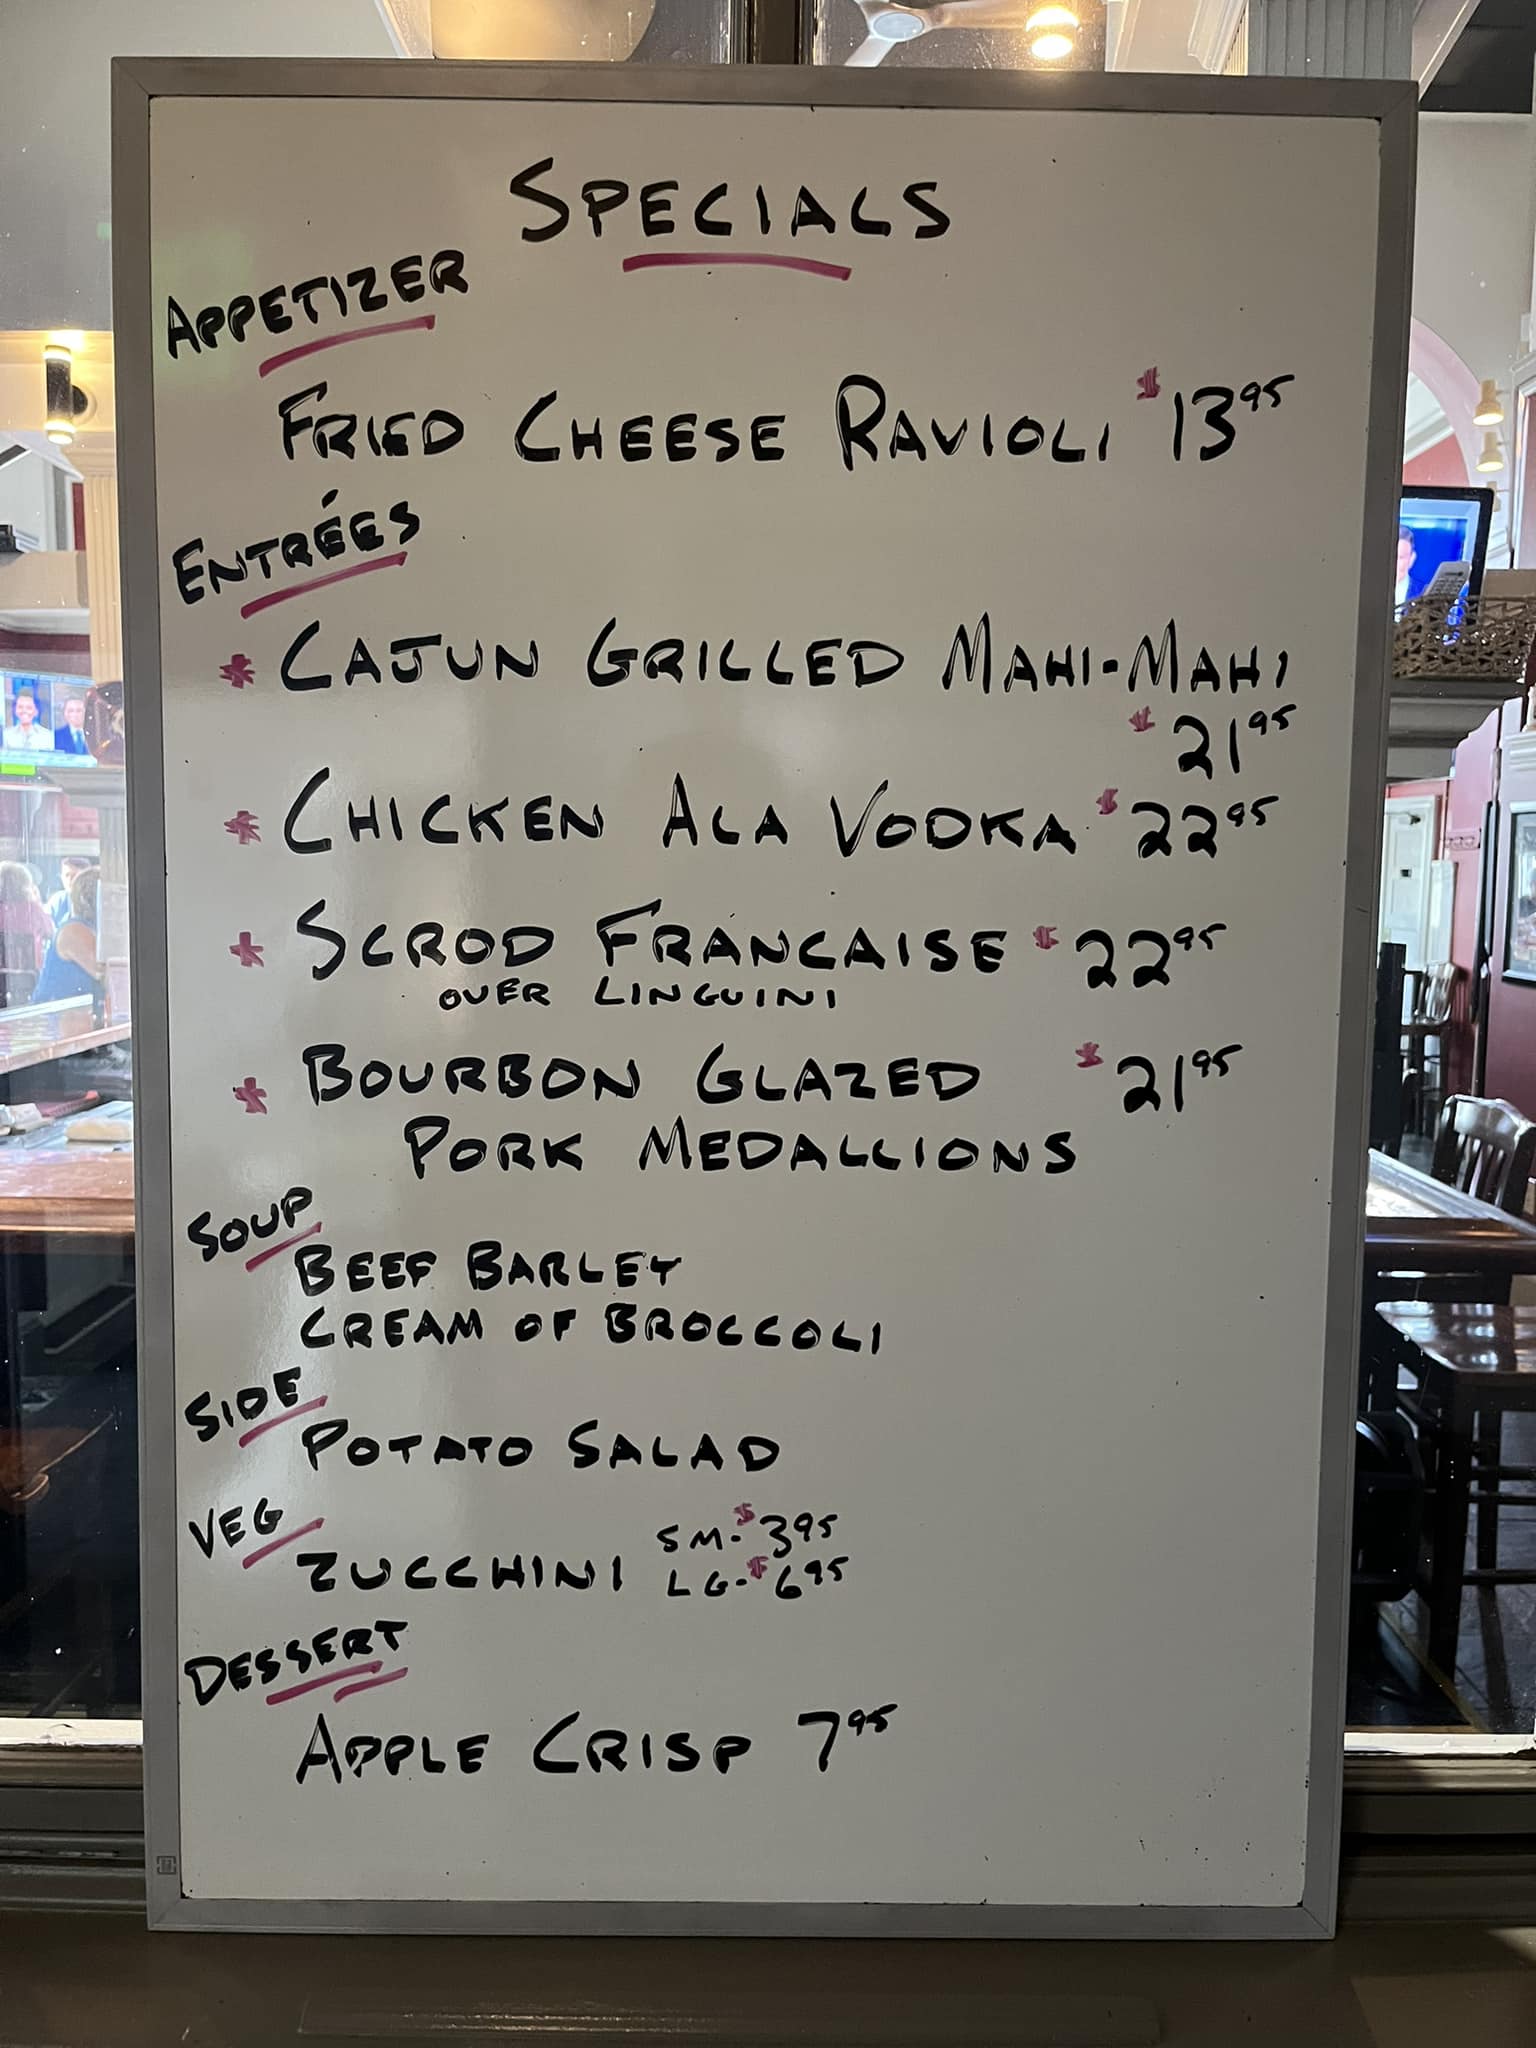 SPECIALS
APPETIZER
FRIED CHEESE RAVIOLI $13.95
ENTRÉES
* CAJUN GRILLED MAHI-MAHI
$21.95
* CHICKEN ALA VODKA $22.95
* SCROD FRANCAISE $22.95
OVER LINGUINI
* BOURBON GLAZED $21.95
PORK MEDALLIONS
SOUP
BEEF BARLEY
CREAM OF BROCCOLI
SIDE
POTATO SALAD
VEG
ZUCCHINI SM-$3.95
LG-$6.95
DESSERT
APPLE CRISP 7.95